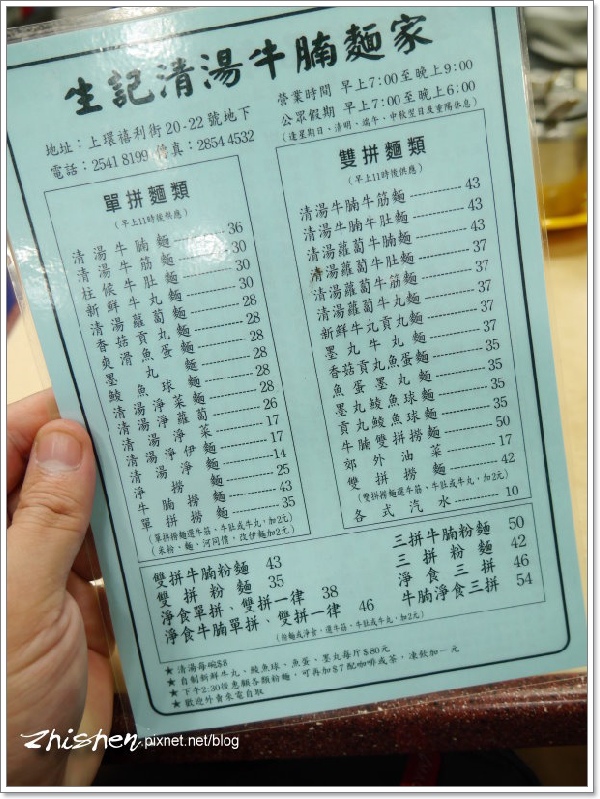 生記清湯牛腩麵家
地址：上環禧利街20-22號地下
電話：2541 8199 傳真：2854 4532
營業時間 早上7:00至晚上9:00
公眾假期 早上7:00至晚上6:00
(逢星期日、清明、端午、中秋翌日及重陽休息)
單拼麵類
(早上11時後供應)
清湯牛腩麵 36
清湯牛筋麵 30
柱候牛肚麵 30
新鮮牛丸麵 30
清湯蘿蔔麵 28
香菇貢丸麵 28
爽滑魚蛋麵 28
墨丸麵 28
鯪魚球麵 28
清湯淨蘿蔔 26
清湯淨菜 17
清湯淨伊麵 17
清湯淨麵 14
淨撈麵 25
牛腩撈麵 43
單拼撈麵 35
(單拼撈麵選牛筋、牛肚或牛丸，加2元)
(米粉、麵、河同價，改伊麵加2元)
雙拼麵類
(早上11時後供應)
清湯牛腩牛筋麵 43
清湯牛腩牛肚麵 43
清湯蘿蔔牛腩麵 43
清湯蘿蔔牛肚麵 37
清湯蘿蔔牛筋麵 37
清湯蘿蔔牛丸麵 37
新鮮牛丸貢丸麵 37
墨丸牛丸麵 37
香菇貢丸魚蛋麵 35
魚蛋墨丸麵 35
墨丸鯪魚球麵 35
貢丸鯪魚球麵 35
牛腩雙拼撈麵 50
郊外油菜 17
雙拼撈麵 42
(雙拼撈麵選牛筋、牛肚或牛丸，加2元)
各式汽水 10
雙拼牛腩粉麵 43
雙拼粉麵 35
淨食單拼、雙拼一律 38
淨食牛腩單拼、雙拼一律 46
三拼牛腩粉麵 50
三拼粉麵 42
淨食三拼 46
牛腩淨食三拼 54
(拍麵或淨食，選牛筋、牛肚或牛丸，加2元)
★ 清湯每碗$8
★ 自制新鮮牛丸、鯪魚球、魚蛋、墨丸每斤$80元
★ 下午2:30後惠顧各類粉麵，可再加$7配咖啡或茶，凍飲加一元
★ 歡迎外賣來電自取
zhishen.pixnet.net/blog